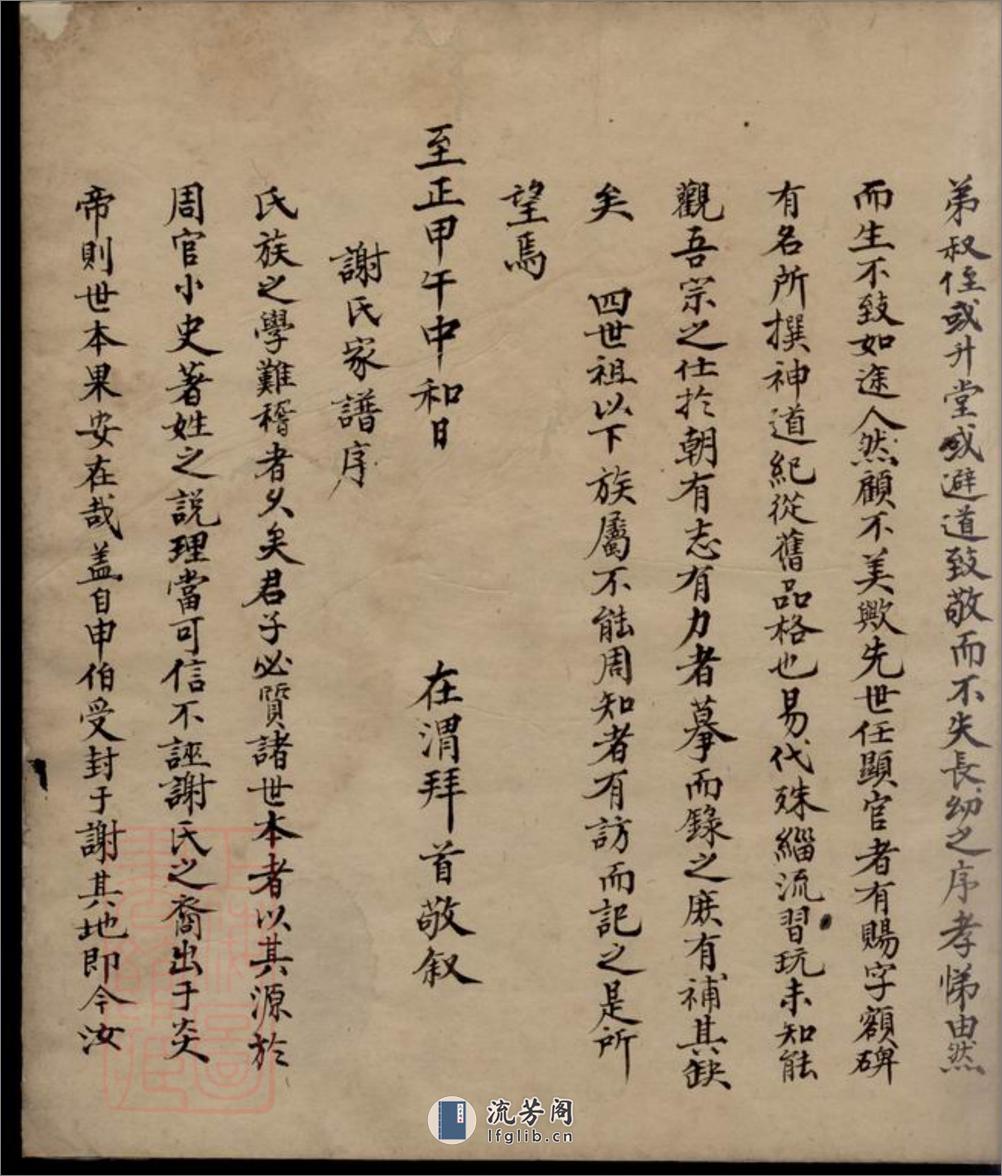 弟叔侄或升堂或避道致敬而不失長幼之序孝悌由然
而生不致如途人然顧不美歟先世任顯官者有賜字額碑
有名所撰神道紀從舊品格也易代殊緇流習玩未知能
觀吾宗之仕於朝有志有力者摹而錄之庶有補其缺
矣 四世祖以下族屬不能周知者有訪而記之是所
望焉
至正甲午中和日 在渭拜首敬叙
謝氏家譜序
氏族之學難稽者久矣君子必質諸世本者以其源於
周官小史著姓之説理當可信不誣謝氏之裔出于炎
帝則世本果安在哉盖自申伯受封于謝其地即今汝
流芳阁
lfglib.cn